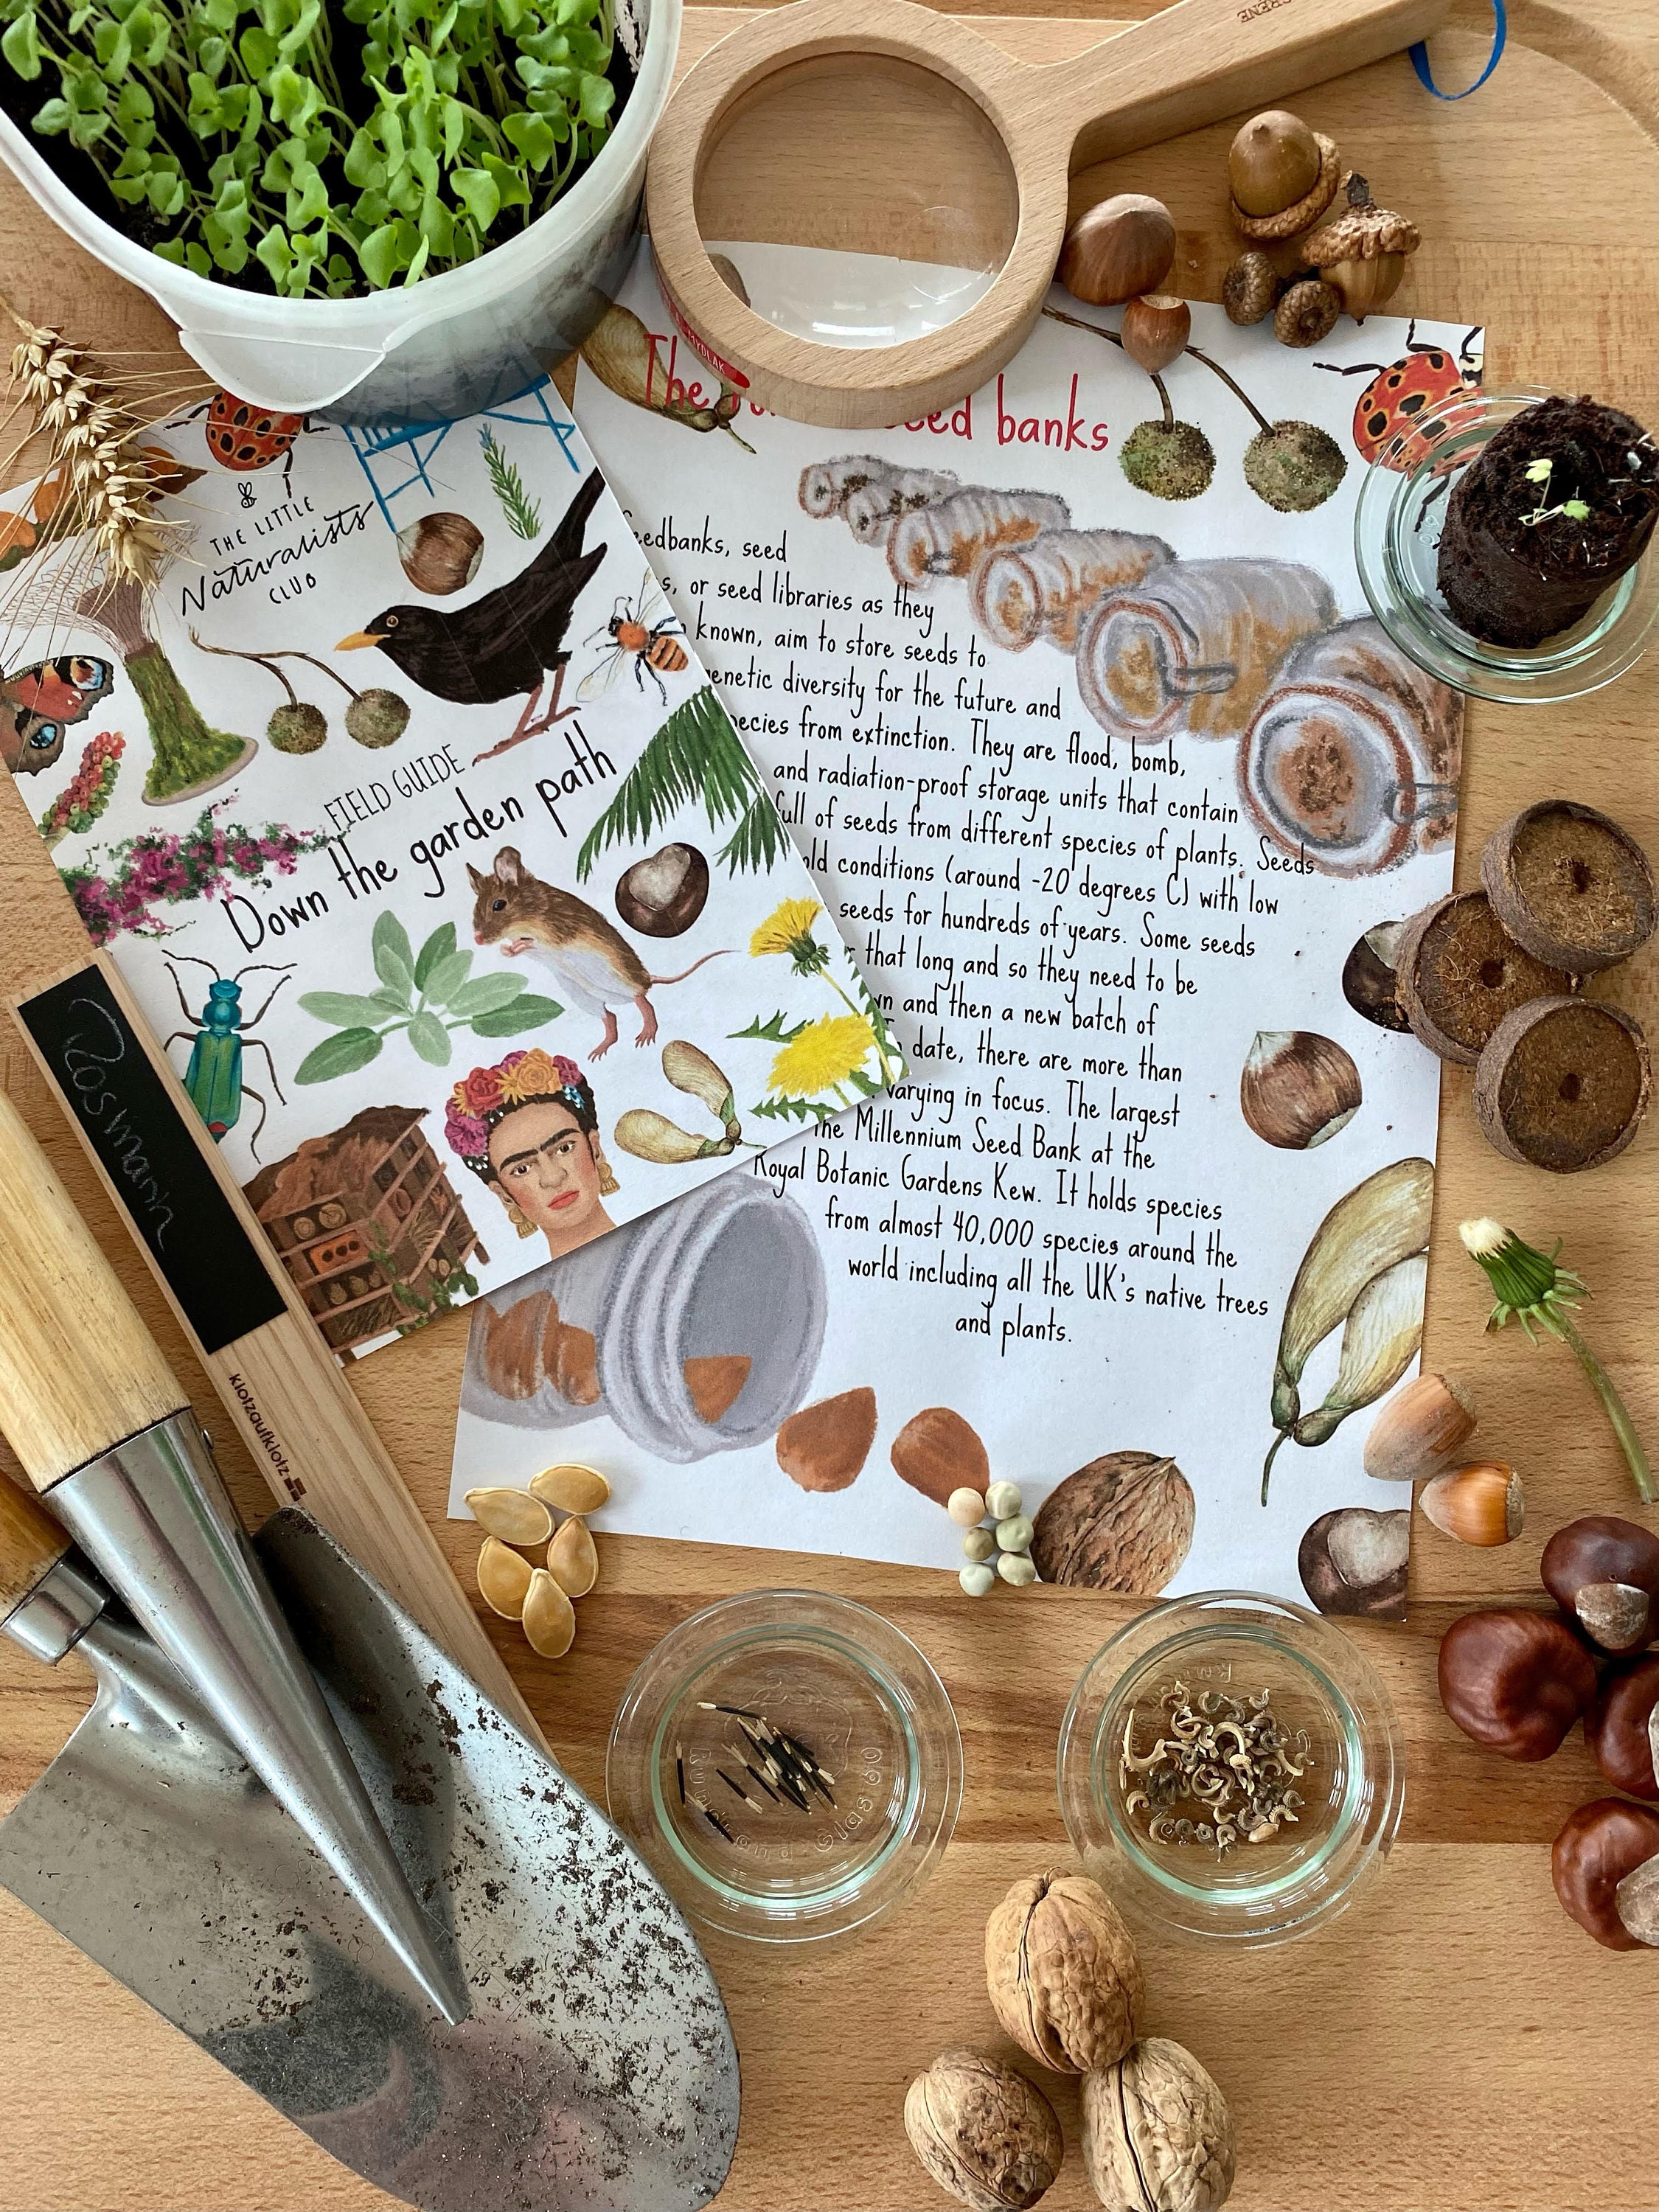 THE LITTLE
Naturalists
CLUB
FIELD GUIDE
Down the garden path
The seed banks
seedbanks, seed
or seed libraries as they
known, aim to store seeds to
genetic diversity for the future and
species from extinction. They are flood, bomb,
and radiation-proof storage units that contain
full of seeds from different species of plants. Seeds
conditions (around -20 degrees C) with low
seeds for hundreds of years. Some seeds
that long and so they need to be
and then a new batch of
date, there are more than
varying in focus. The largest
the Millennium Seed Bank at the
Royal Botanic Gardens Kew. It holds species
from almost 40,000 species around the
world including all the UK's native trees
and plants.
Rosmarin
klotzaufklotz